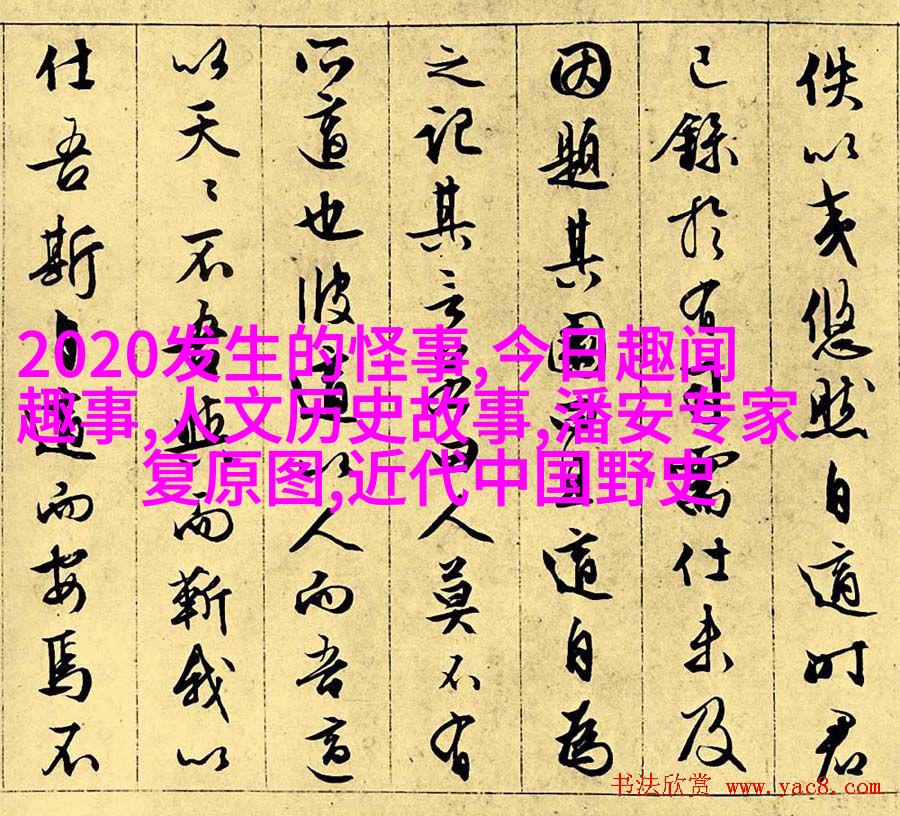 2020发生的怪事,今日趣闻
趣事,人文历史故事,潘安专家
复原图,近代中国野史
佚以夷悠然自適时君
已錄於有需仕未及
因題其園適自為
之記其言曰人莫不有
所適也彼適以人而吾適
以天〻不吾而靳我以
仕吾斯自適而安焉不
书法欣赏 www.yac8.com